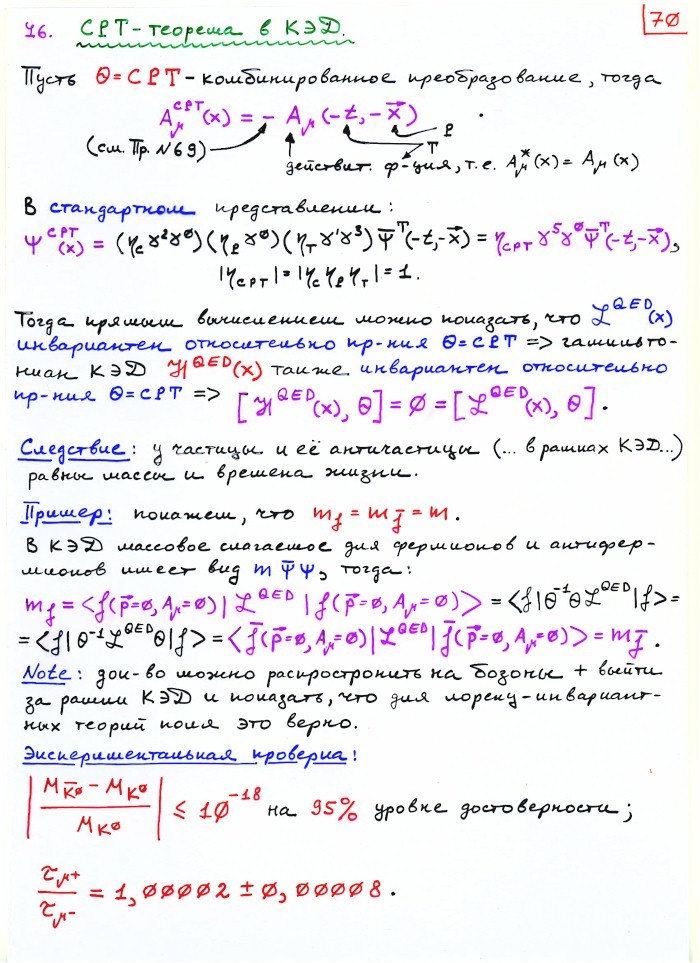 70
76. CPT-теорема в КЭД.
Пусть Θ = CPT - комбинированное преобразование, тогда
A_μ^{CPT}(x) = - A_μ(-t, -x⃗)
P
(см. Пр. №69)
T
действит. ф-ция, т.е. A_μ^*(x) = A_μ(x)
В стандартном представлении:
Ψ^{CPT}(x) = (η_C γ²γ⁰)(η_P γ⁰)(η_T γ¹γ³) Ψ̄^T(-t,-x⃗) = η_{CPT} γ⁵γ⁰Ψ̄^T(-t,-x⃗),
|η_{CPT}| = |η_C η_P η_T| = 1.
Тогда прямым вычислением можно показать, что ℒ^{QED}(x)
инвариантен относительно пр-ния Θ = CPT => гамильто-
ниан КЭД ℋ^{QED}(x) также инвариантен относительно
пр-ния Θ = CPT => [ℋ^{QED}(x), Θ] = 0 = [ℒ^{QED}(x), Θ].
Следствие: у частицы и её античастицы (... в рамках КЭД...)
равны массы и времена жизни.
Пример: покажем, что m_f = m_f̄ = m.
В КЭД массовое слагаемое для фермионов и антифер-
мионов имеет вид m Ψ̄Ψ, тогда:
m_f = <f(p⃗=0, A_μ=0)| ℒ^{QED} |f(p⃗=0, A_μ=0)> = <f|Θ⁻¹Θℒ^{QED}|f> =
= <f|Θ⁻¹ℒ^{QED}Θ|f> = <f̄(p⃗=0, A_μ=0)|ℒ^{QED}|f̄(p⃗=0, A_μ=0)> = m_f̄.
Note: док-во можно распространить на бозоны + выйти
за рамки КЭД и показать, что для лоренц-инвариант-
ных теорий поля это верно.
Экспериментальная проверка:
|(M_{K̄⁰} - M_{K⁰}) / M_{K⁰}| ≤ 10⁻¹⁸ на 95% уровне достоверности;
τ_{μ⁺} / τ_{μ⁻} = 1,00002 ± 0,00008.